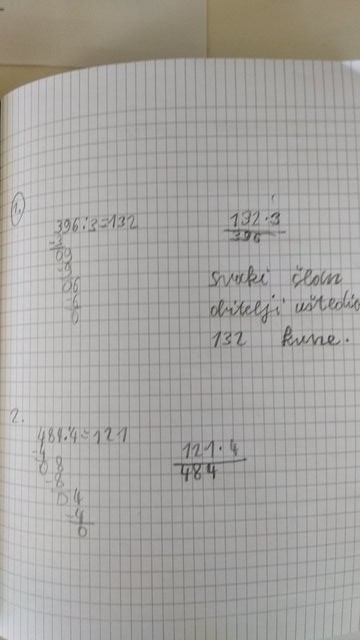 1.
396:3=132
-3
09
-9
06
-6
0
132·3
396
svaki član
obitelji uštedio
132 kune.
2.
484:4=121
-4
08
-8
04
-4
0
121·4
484